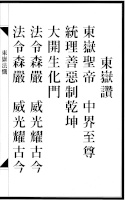 東嶽讚
東嶽聖帝　中界至尊
統理善惡制乾坤
大開生化門
法令森嚴　威光耀古今
法令森嚴　威光耀古今